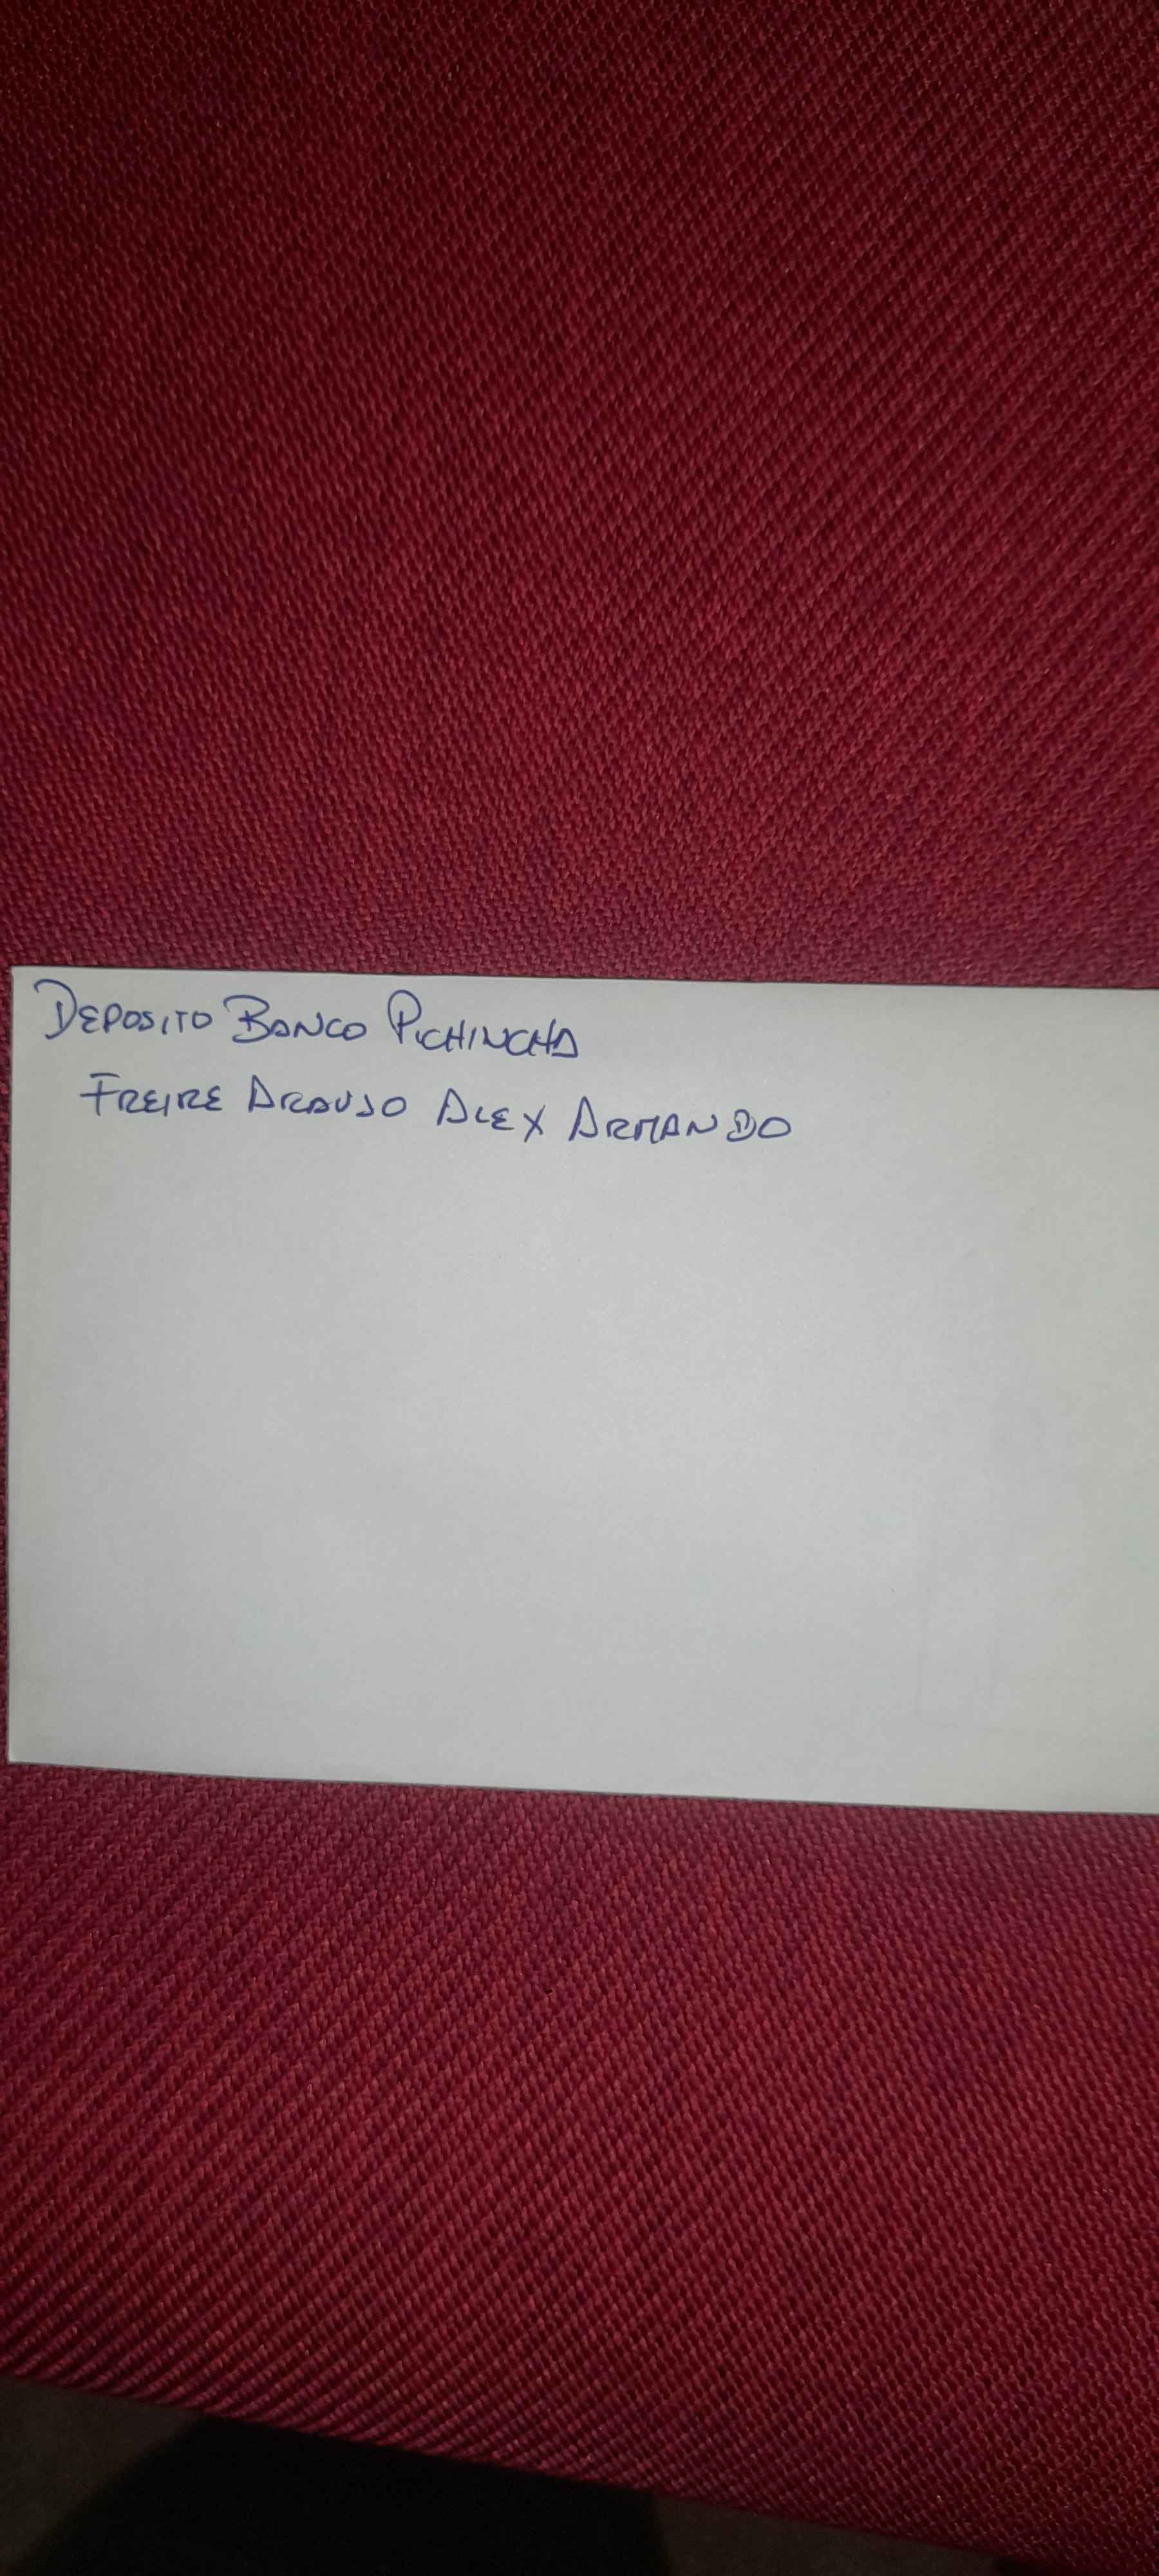 DEPOSITO BANCO PICHINCHA
FREIRE ARAUJO ALEX ARMANDO